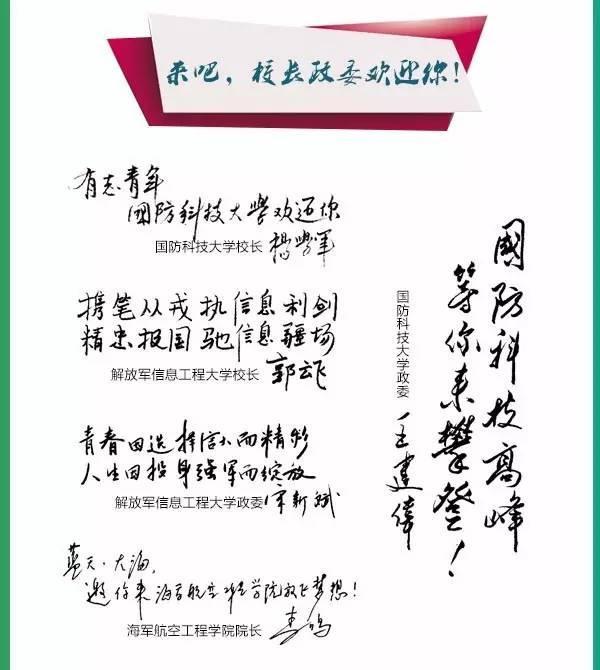 来吧，校长政委欢迎你！
有志青年
國防科技大學欢迎你
国防科技大学校长 楊學軍
携笔从戎执信息利剑
精忠报国驰信息疆场
解放军信息工程大学校长 郭云飞
青春因选择信大而精彩
人生因投身强军而绽放
解放军信息工程大学政委 宋新斌
蓝天·大海，
邀你来海军航空工程学院放飞梦想！
海军航空工程学院院长 李鸣
國防科技高峰
等你来攀登！
国防科技大学政委 王建偉